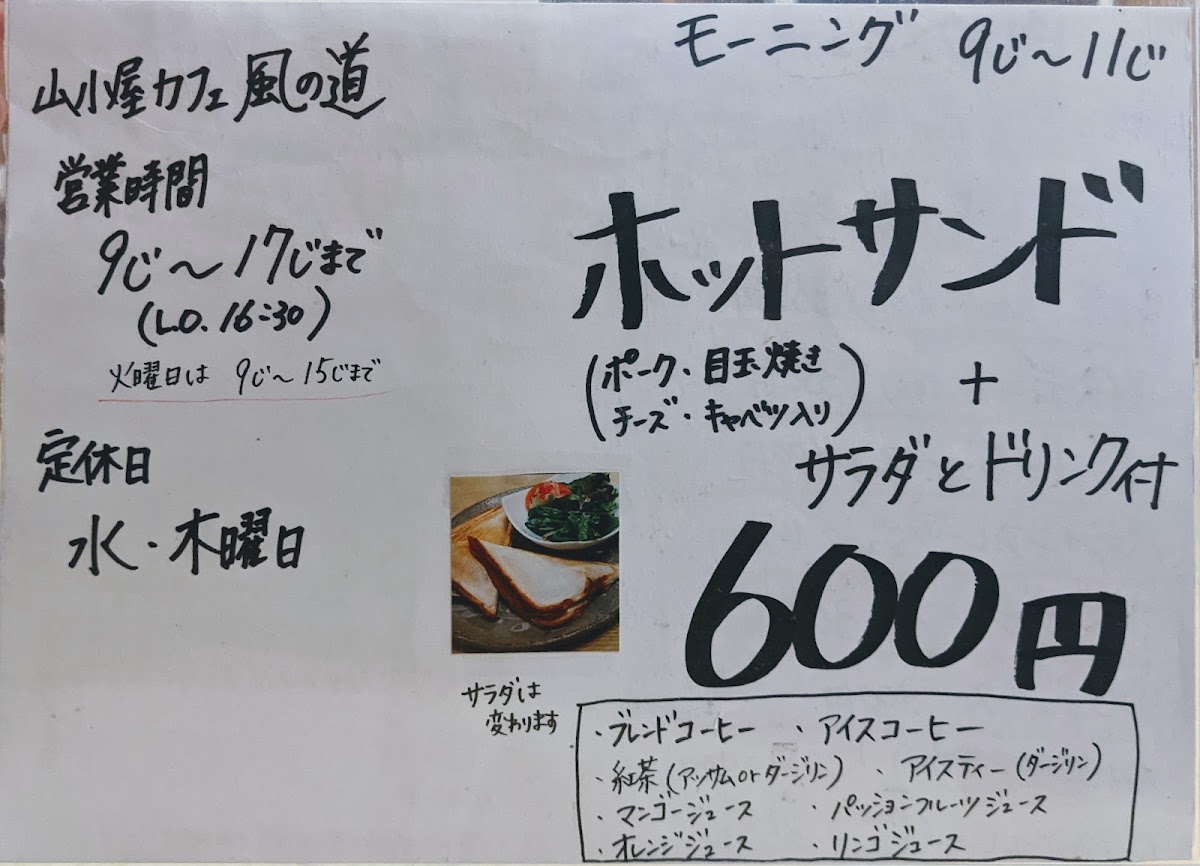 山小屋カフェ風の道
営業時間
9じ～17じまで
(L.O. 16:30)
火曜日は 9じ～15じまで
定休日
水・木曜日
モーニング 9じ～11じ
ホットサンド
(ポーク・目玉焼き
チーズ・キャベツ入り)
+
サラダとドリンク付
600円
サラダは
変わります
・ブレンドコーヒー ・アイスコーヒー
・紅茶(アッサムorダージリン) ・アイスティー(ダージリン)
・マンゴージュース ・パッションフルーツジュース
・オレンジジュース ・リンゴジュース